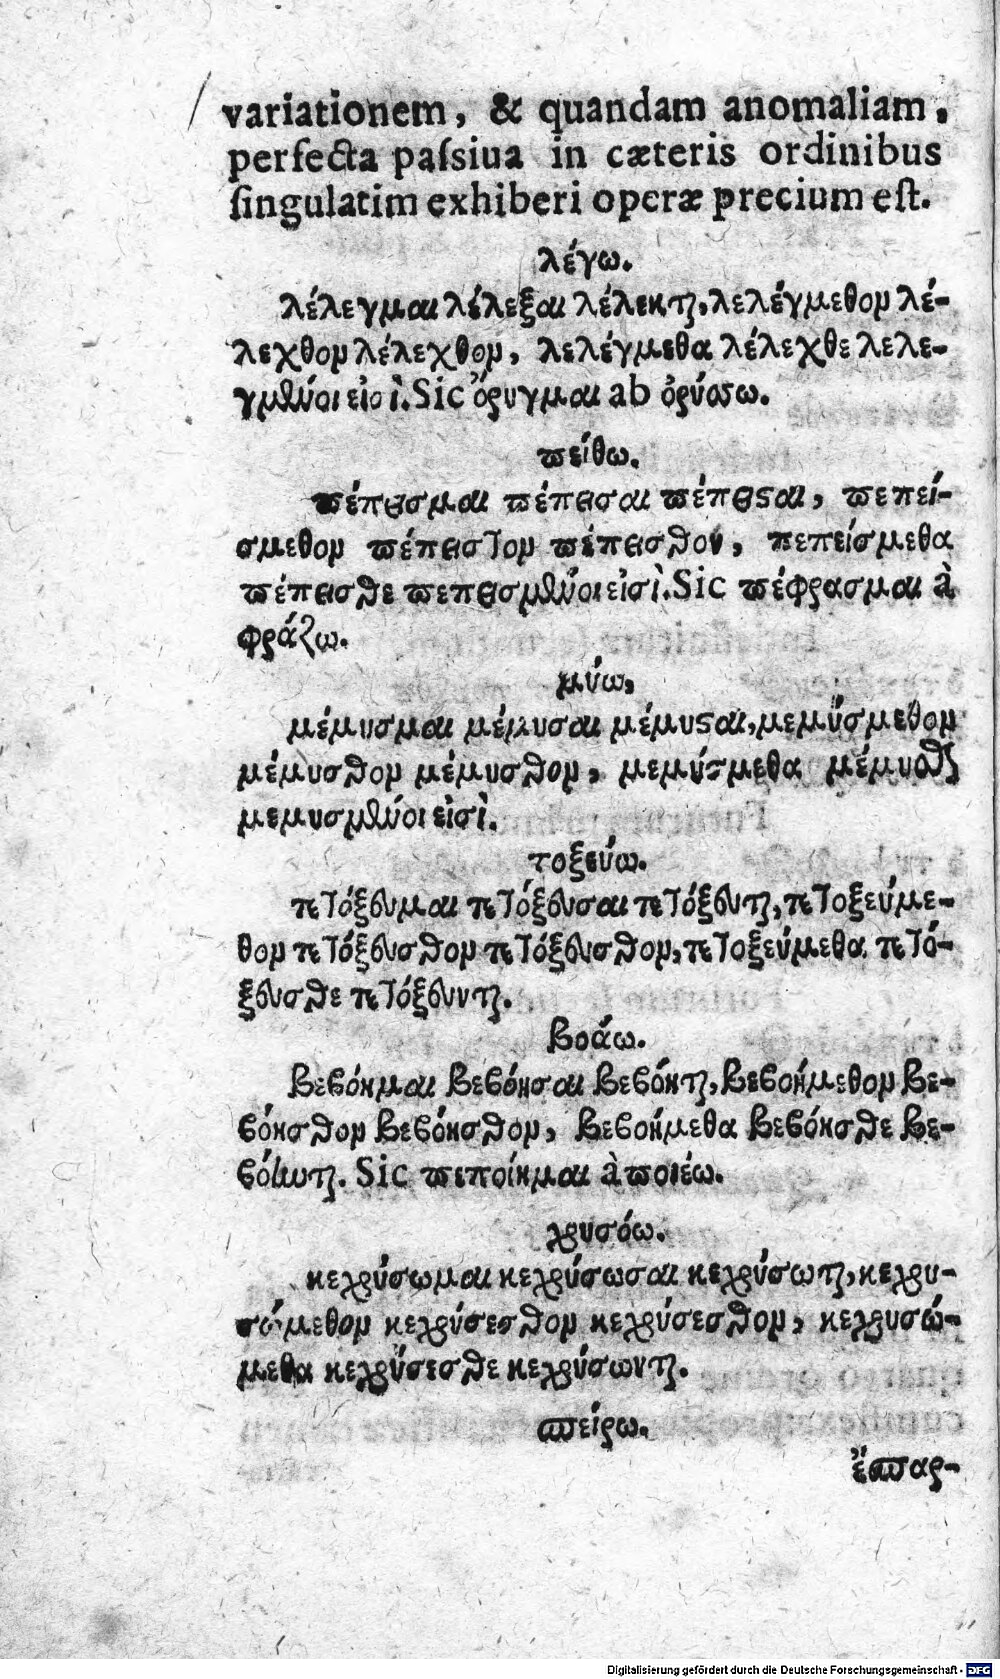 variationem, & quandam anomaliam,
perfecta paſsiua in cæteris ordinibus
ſingulatim exhiberi operæ precium eſt.
λέγω.
λέλεγμαι λέλεξαι λέλεκται, λελέγμεθον λέ-
λεχθον λέλεχθον, λελέγμεθα λέλεχθε λελε-
γμένοι εἰσὶ. Sic ὄρυγμαι ab ὀρύσσω.
ϖείθω.
ϖέπεισμαι ϖέπεισαι ϖέπειϛαι, ϖεπεί-
σμεθον ϖέπεισθον ϖέπεισθον, πεπείσμεθα
ϖέπεισθε ϖεπεισμένοι εἰσὶ. Sic ϖέφρασμαι à
φράζω.
μύω,
μέμυσμαι μέμυσαι μέμυϛαι, μεμύσμεθον
μέμυσθον μέμυσθον, μεμύσμεθα μέμυσθε
μεμυσμένοι εἰσὶ.
τοξεύω.
πετόξευμαι πετόξευσαι πετόξευται, πετοξεύμε-
θον πετόξευσθον πετόξευσθον, πετοξεύμεθα πετό-
ξευσθε πετόξευνται.
βοάω.
βεϐόημαι βεϐόησαι βεϐόηται, βεϐοήμεθον βε-
ϐόησθον βεϐόησθον, βεϐοήμεθα βεϐόησθε βε-
ϐόηνται. Sic ϖεποίημαι à ϖοιέω.
χρυσόω.
κεχρύσωμαι κεχρύσωσαι κεχρύσωται, κεχρυ-
σώμεθον κεχρύσεσθον κεχρύσεσθον, κεχρυσώ-
μεθα κεχρύσεσθε κεχρύσωνται.
σπείρω.
ἔσπαρ-
Digitalisierung gefördert durch die Deutsche Forschungsgemeinschaft - DFG